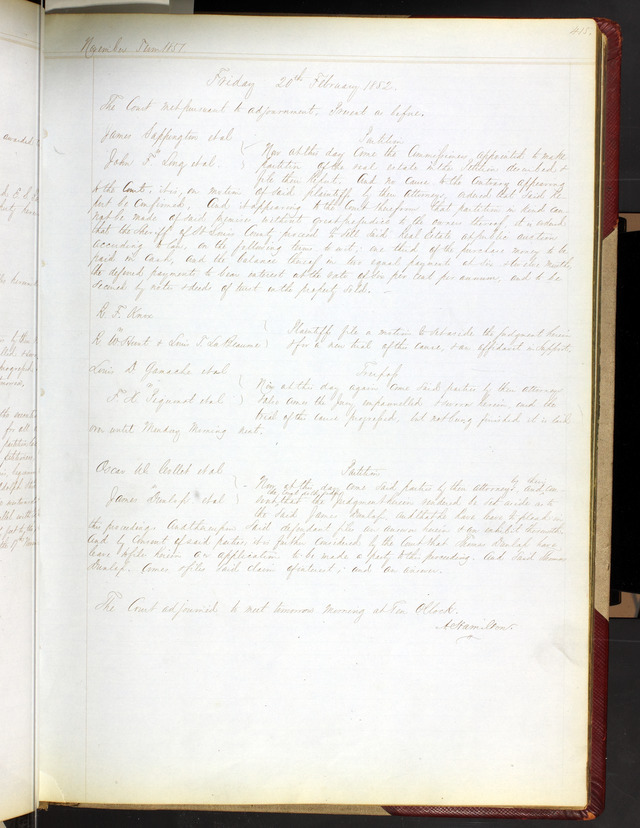 415.
November Term 1851.
Friday 20th February 1852.
The Court met pursuant to adjournment. Present as before.
James Sappington et al
vs
John F. Long et al.
Partition
Now at this day come the Commissioners, appointed to make
partition of the real estate in the Petition described &
file their Report. And no cause to the Contrary appearing
to the Court, it is, on motion of said plaintiffs by their Attorney, ordered that said Re-
port be confirmed. And it appearing to the Court therefrom that partition in kind can
not be made of said premises without great prejudice to the owners thereof, it is ordered
that the Sheriff of St Louis County proceed to sell said Real Estate at public auction
according to law, on the following terms to wit; one third of the purchase money to be
paid in Cash, and the balance thereof in two equal payments at six & twelve months,
the deferred payments to bear interest at the rate of six per cent per annum, and to be
secured by notes & deeds of trust on the property sold.
R. F.
vs
R. W. Hunt & Louis T. La Beaume
Plaintiff files a motion to set aside the judgment herein
& for a new trial of this cause, & an affidavit in support.
Louis D. Ganache et al
vs
F. K. et al
Trespass
Now at this day again come said parties by their attorneys
also comes the Jury empannelled & sworn herein, and the
trial of the cause progressed, but not being finished it is laid
over until Monday Morning next.
Oscar W. Collet et al
vs
James Dunlap et al
Partition
Now at this day come said parties by their attorneys and, by their
consent the judgment herein rendered is set aside as to
the said James Dunlap and that he have leave to plead in
the proceedings. And thereupon said defendant files an answer herein & an exhibit therewith.
And by Consent of said parties, it is further considered by the Court that Thomas Dunlap have
leave to file herein an application to be made a party to the proceeding. And said Thomas
Dunlap. Comes & files said claim of interest, and an answer.
The Court adjourned to meet tomorrow morning at Ten O'Clock.
A Hamilton